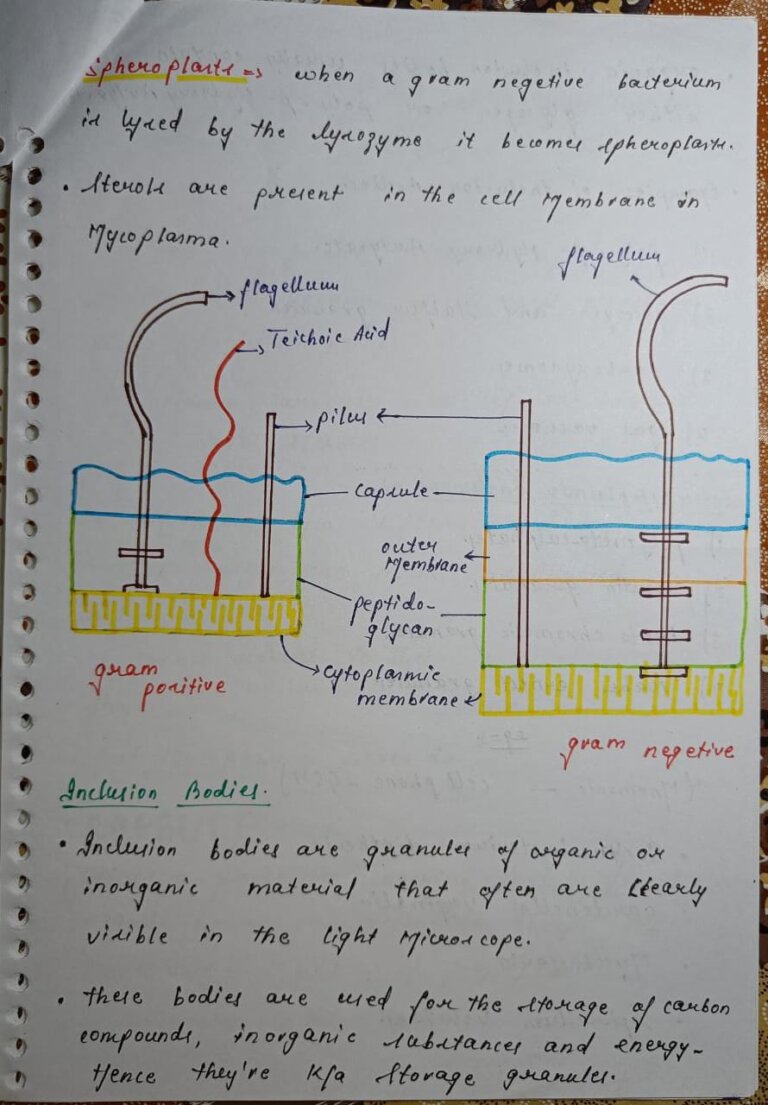 Spheroplasts => when a gram negetive bacterium
is lysed by the lysozyme it becomes spheroplasts.
• Sterols are present in the cell Membrane in
Mycoplasma.
flagellum
flagellum
Teichoic Acid
pilus
capsule
outer
Membrane
peptido-
glycan
cytoplasmic
membrane
gram
positive
gram negetive
Inclusion Bodies.
• Inclusion bodies are granules of organic or
inorganic material that often are clearly
visible in the light Microscope.
• These bodies are used for the storage of carbon
compounds, inorganic substances and energy-
Hence they're K/a storage granules.